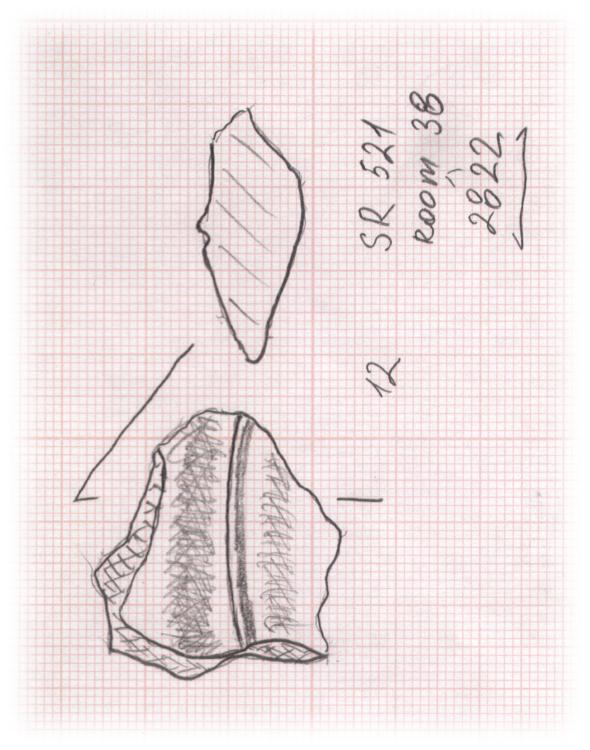 SR 521
Room 3B
2822
12